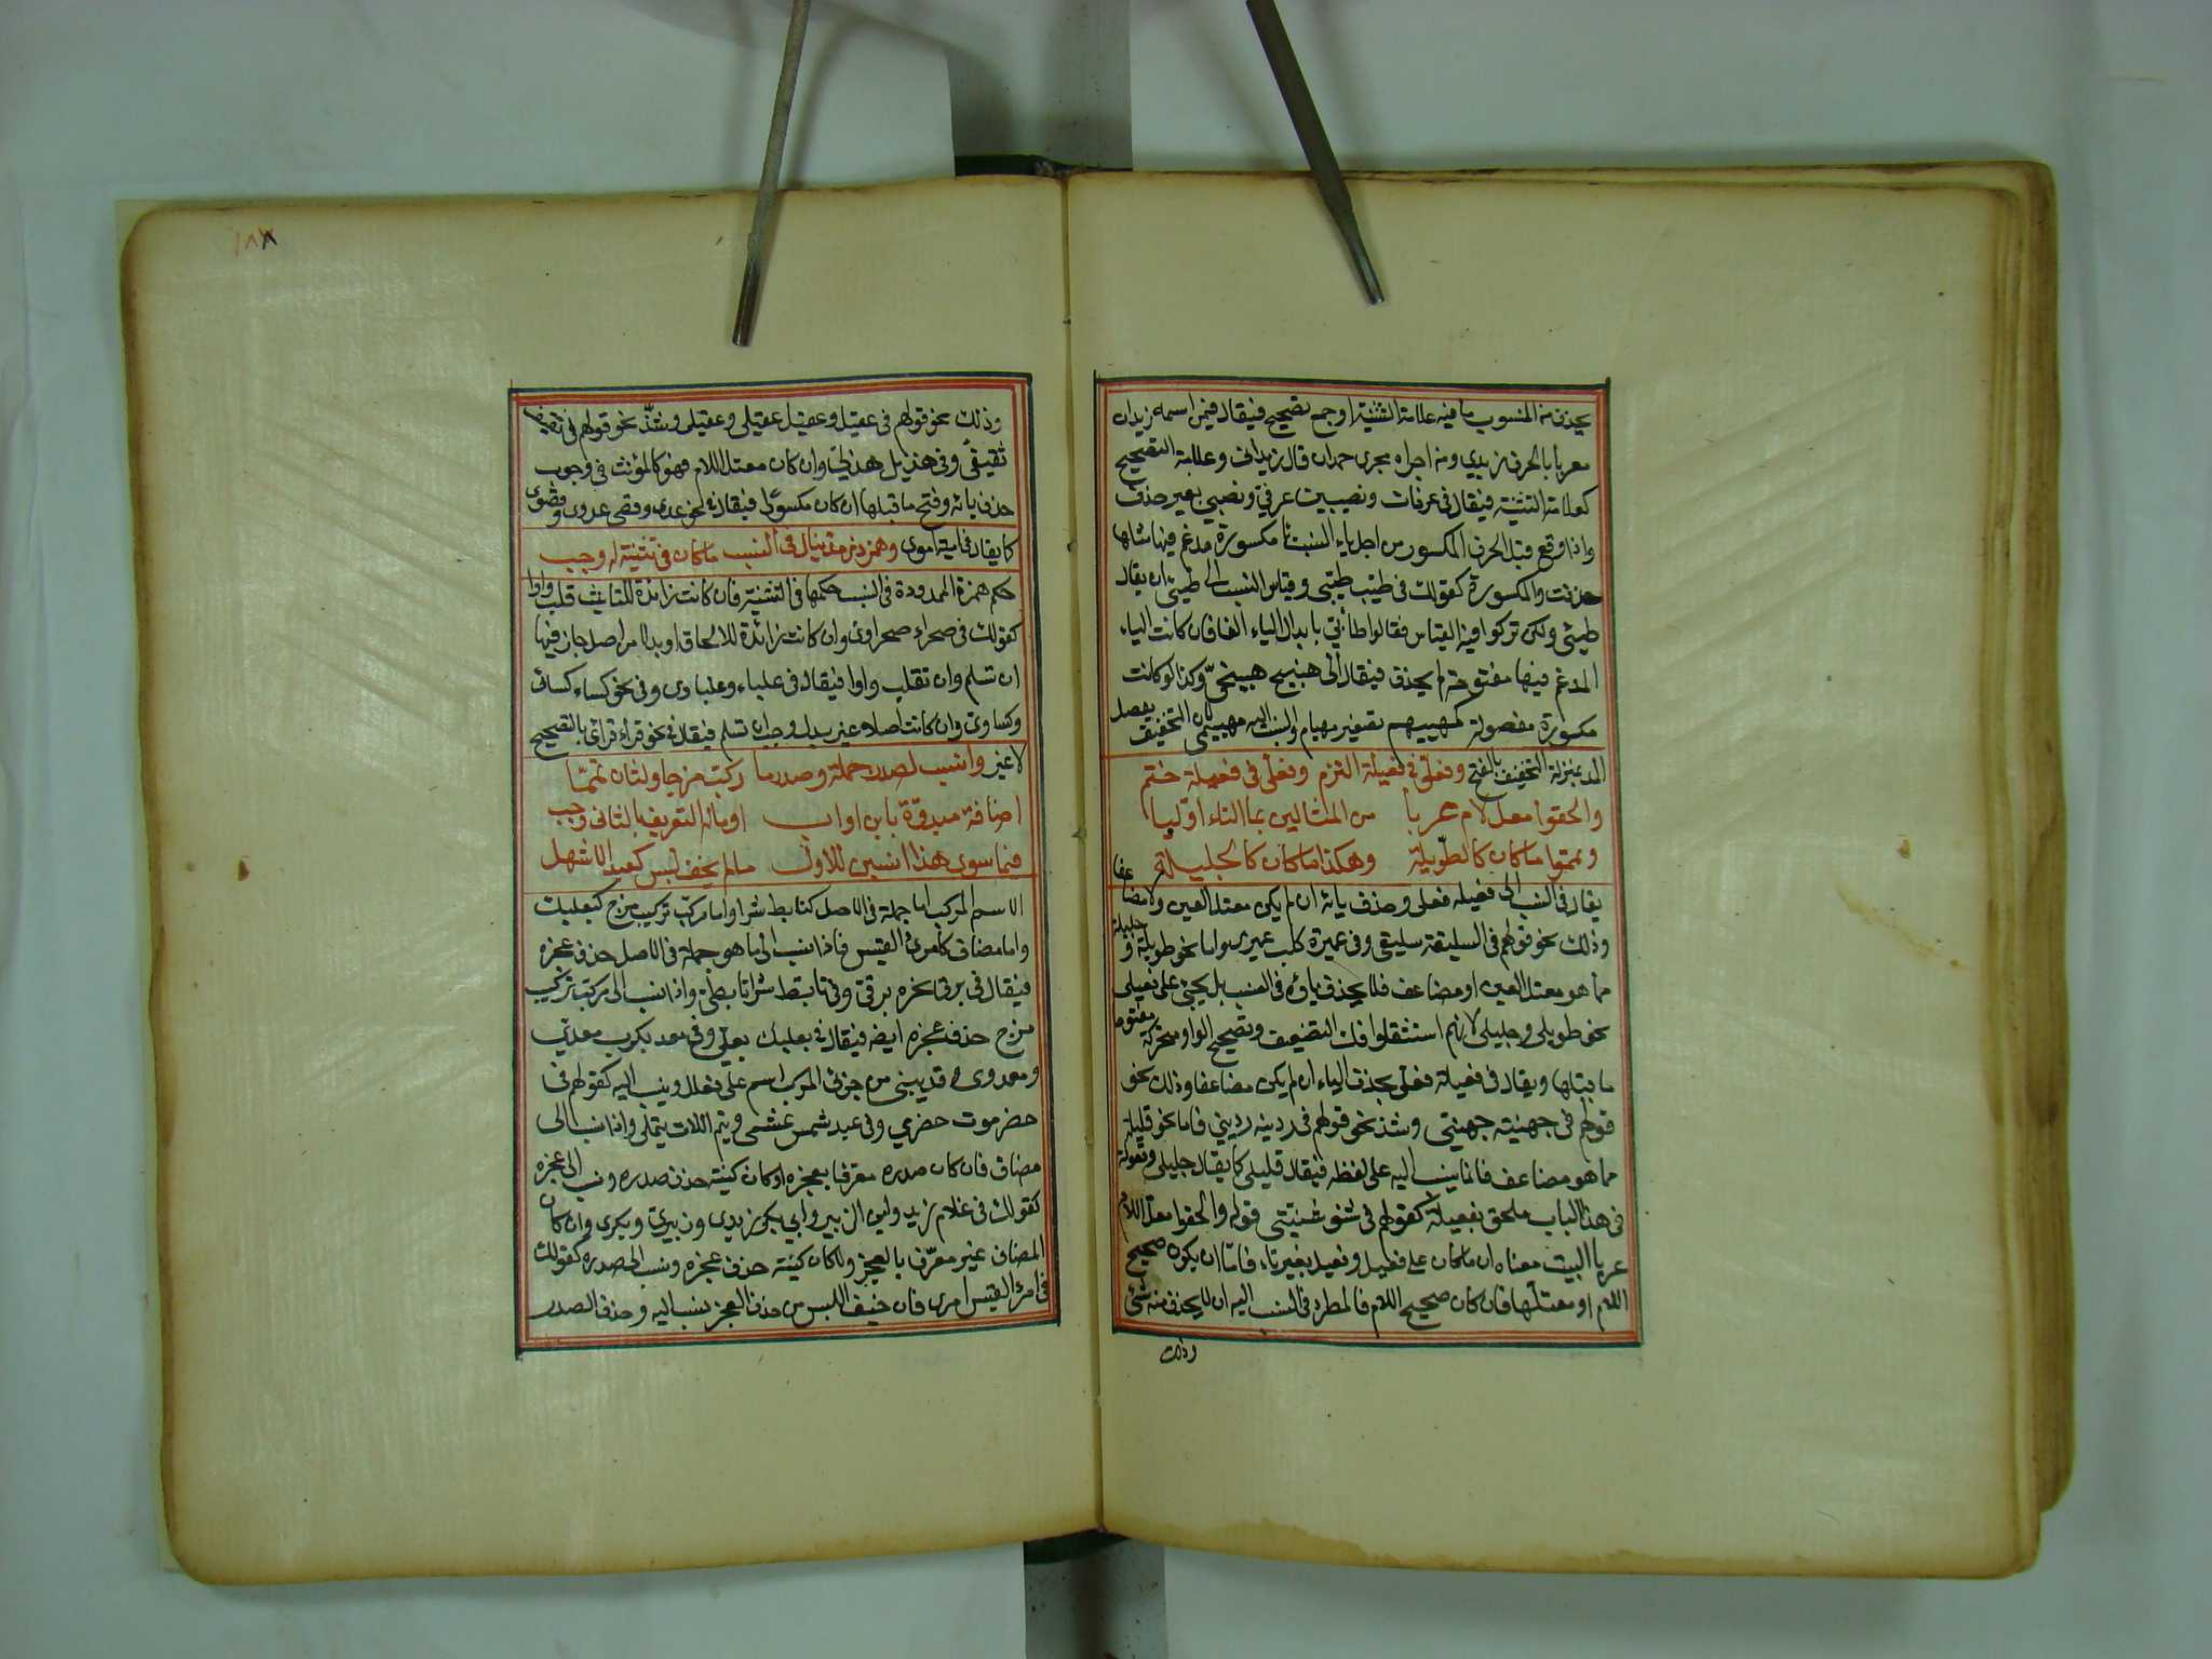 يحذف من المنسوب ما فيه علامة التثنية او جمع تصحيح فيقال فيمن اسمه زيدان
معربا بالحرف زيدي ومن اجراه مجرى حمدان قال زيداني وعلامة التصحيح
كعلامة التثنية فيقال في عرفات ونصيبين عرفي ونصيبي بغير حذف
واذا وقع قبل الحرف المكسور من اجل ياء النسبت يا مكسورة مدغم فيها مثلها
حذفت والمكسورة كقولك في طيب طيبي وقياس النسب الى طيئ ان يقال
طيئي ولكن تركوا فيه القياس فقالوا طائي بابدال الياء الفا فان كانت الياء
المدغم فيها مفتوحة لم يحذف فيقال الى هبيج هبيخيّ وكذا لو كانت
مكسورة مفصولة كمهييم تصغير مهيام والنسب اليه مهييمي لان التخفيف بفصل
المد بمنزلة التخفيف بالفتح وفعلي في فعيلة التزم وفعلي في فعيلة حتم
والحقوا معل لام عريا من المثالين بما التاء اوّليا
وتمموا ما كان كالطّويلة وهكذا ما كان كالجليلة
يقال في النسب الى فعيله فعلى وحذف يائه ان لم يكن معتل العين ولا مضاعفا
وذلك نحو قولهم في السليقة سليقي وفي عميرة كلب عميرى واما نحو طويلة و جليلة
مما هو معتل العين او مضاعف فلا يحذف ياؤه في النسب بل يجئ على فعيلى
نحو طويلى وجليلى لانهم استثقلوا فك التضعيف وتصحيح الواو متحركة مفتوح
ما قبلها ويقال في فعيلة فعلى بحذف الياء ان لم يكن مضاعفا وذلك نحو
قولهم في جهينة جهيني وشذ نحو قولهم في ردينه رديني فاما نحو قليلة
مما هو مضاعف فانما ينسب اليه على لفظه فيقال قليلى كما يقال جليلى وفعولة
في هذا الباب ملحق بفعيلة كقولهم في شنو شنيتي قوله والحقوا معل اللام
عريا البيت معناه ان ما كان على فعيل وفعيل بغير تاء فامّا ان يكون صحيح
اللام او معتلّها فان كان صحيح اللام فالمطرد في النسب اليه ان لا يحذف منه شئ
وذلك
١٨٨
وذلك نحو قولهم في عقيل وعقيل عقيلى وعقيلى وشذّ نحو قولهم في ثقيف
ثقيفي وفي هذيل هذلي وان كان معتل اللام فهو كالمؤنث في وجوب
حذف يائه وفتح ما قبلها ان كان مكسورا فيقال في نحو عدى وقصى عدوى وقصوى
كما يقال في امية اموى وهمز ذي مد ينال في النسب ما كان في تثنية له وجب
حكم همزة الممدودة في النسب حكمها في التثنية فان كانت زائدة للتانيث قلبت واوا
كقولك في صحراء صحراوى وان كانت زائدة للالحاق او بدلا من اصل جاز فيها
ان تسلم وان تقلب واوا فيقال في علباء وعلباوى وفي نحو كساء كسائى
وكساوى وان كانت اصلا غير بدل وجب ان تسلم فيقال في نحو قراء قرائى بالتصحيح
لا غير وانسب لصدر جملة وصدر ما ركب مزجا ولثان تمّما
اضافة مبدوّة بابن او اب او ماله التعريف بالثاني وجب
فيما سوى هذا انسبن للاول ما لم يخف لبس كعبد الاشهل
الاسم المركب اما جملة في الاصل كتابط شرا واما مركب تركيب مزج كبعلبك
واما مضاف كامرئ القيس فاذا نسب الى ما هو جملة في الاصل حذف عجزه
فيقال في برق نحره برقي وفي تابط شرا تابطي واذا نسب الى مركب تركيب
مزج حذف عجزه ايضه فيقال في بعلبك بعلي وفي معد يكرب معدي
ومعدوى وقد يبنى من جزئى المركب اسم على فعلل وينسب اليه كقولهم في
حضرموت حضرمي وفي عبد شمس عبشمى وتيم اللات تيملى واذا نسب الى
مضاف فان كان صدره معرفا بعجزه او كان كنيته حذف صدره ونسب الى عجزه
كقولك في غلام زيد وابن الزبير وابي بكر زيدى وزبيري وبكرى وان كان
المضاف غير معرّف بالعجز ولا كان كنيته حذف عجزه ونسب الى صدره كقولك
في امرئ القيس امرى فان خيف اللبس من حذف العجز ينسب اليه وحذف الصدر